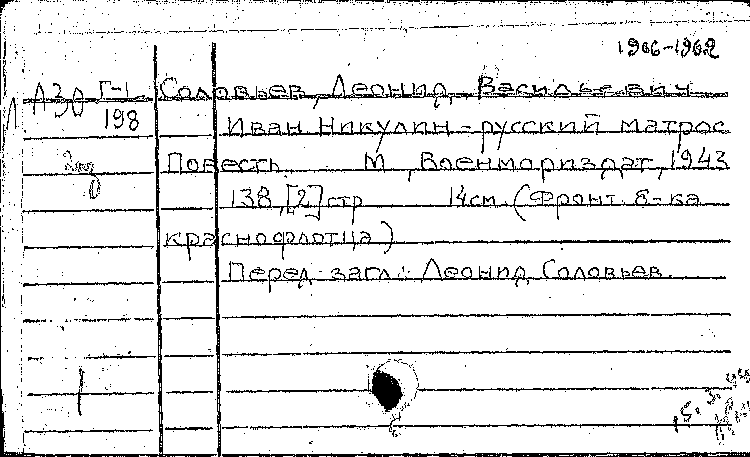 1906-1962
А30 Г-1 Соловьев, Леонид Васильевич
198 Иван Никулин - русский матрос
Повесть. М., Военмориздат, 1943
138, [2] стр 14см. (Фронт. б-ка
краснофлотца)
Перед загл.: Леонид Соловьев.